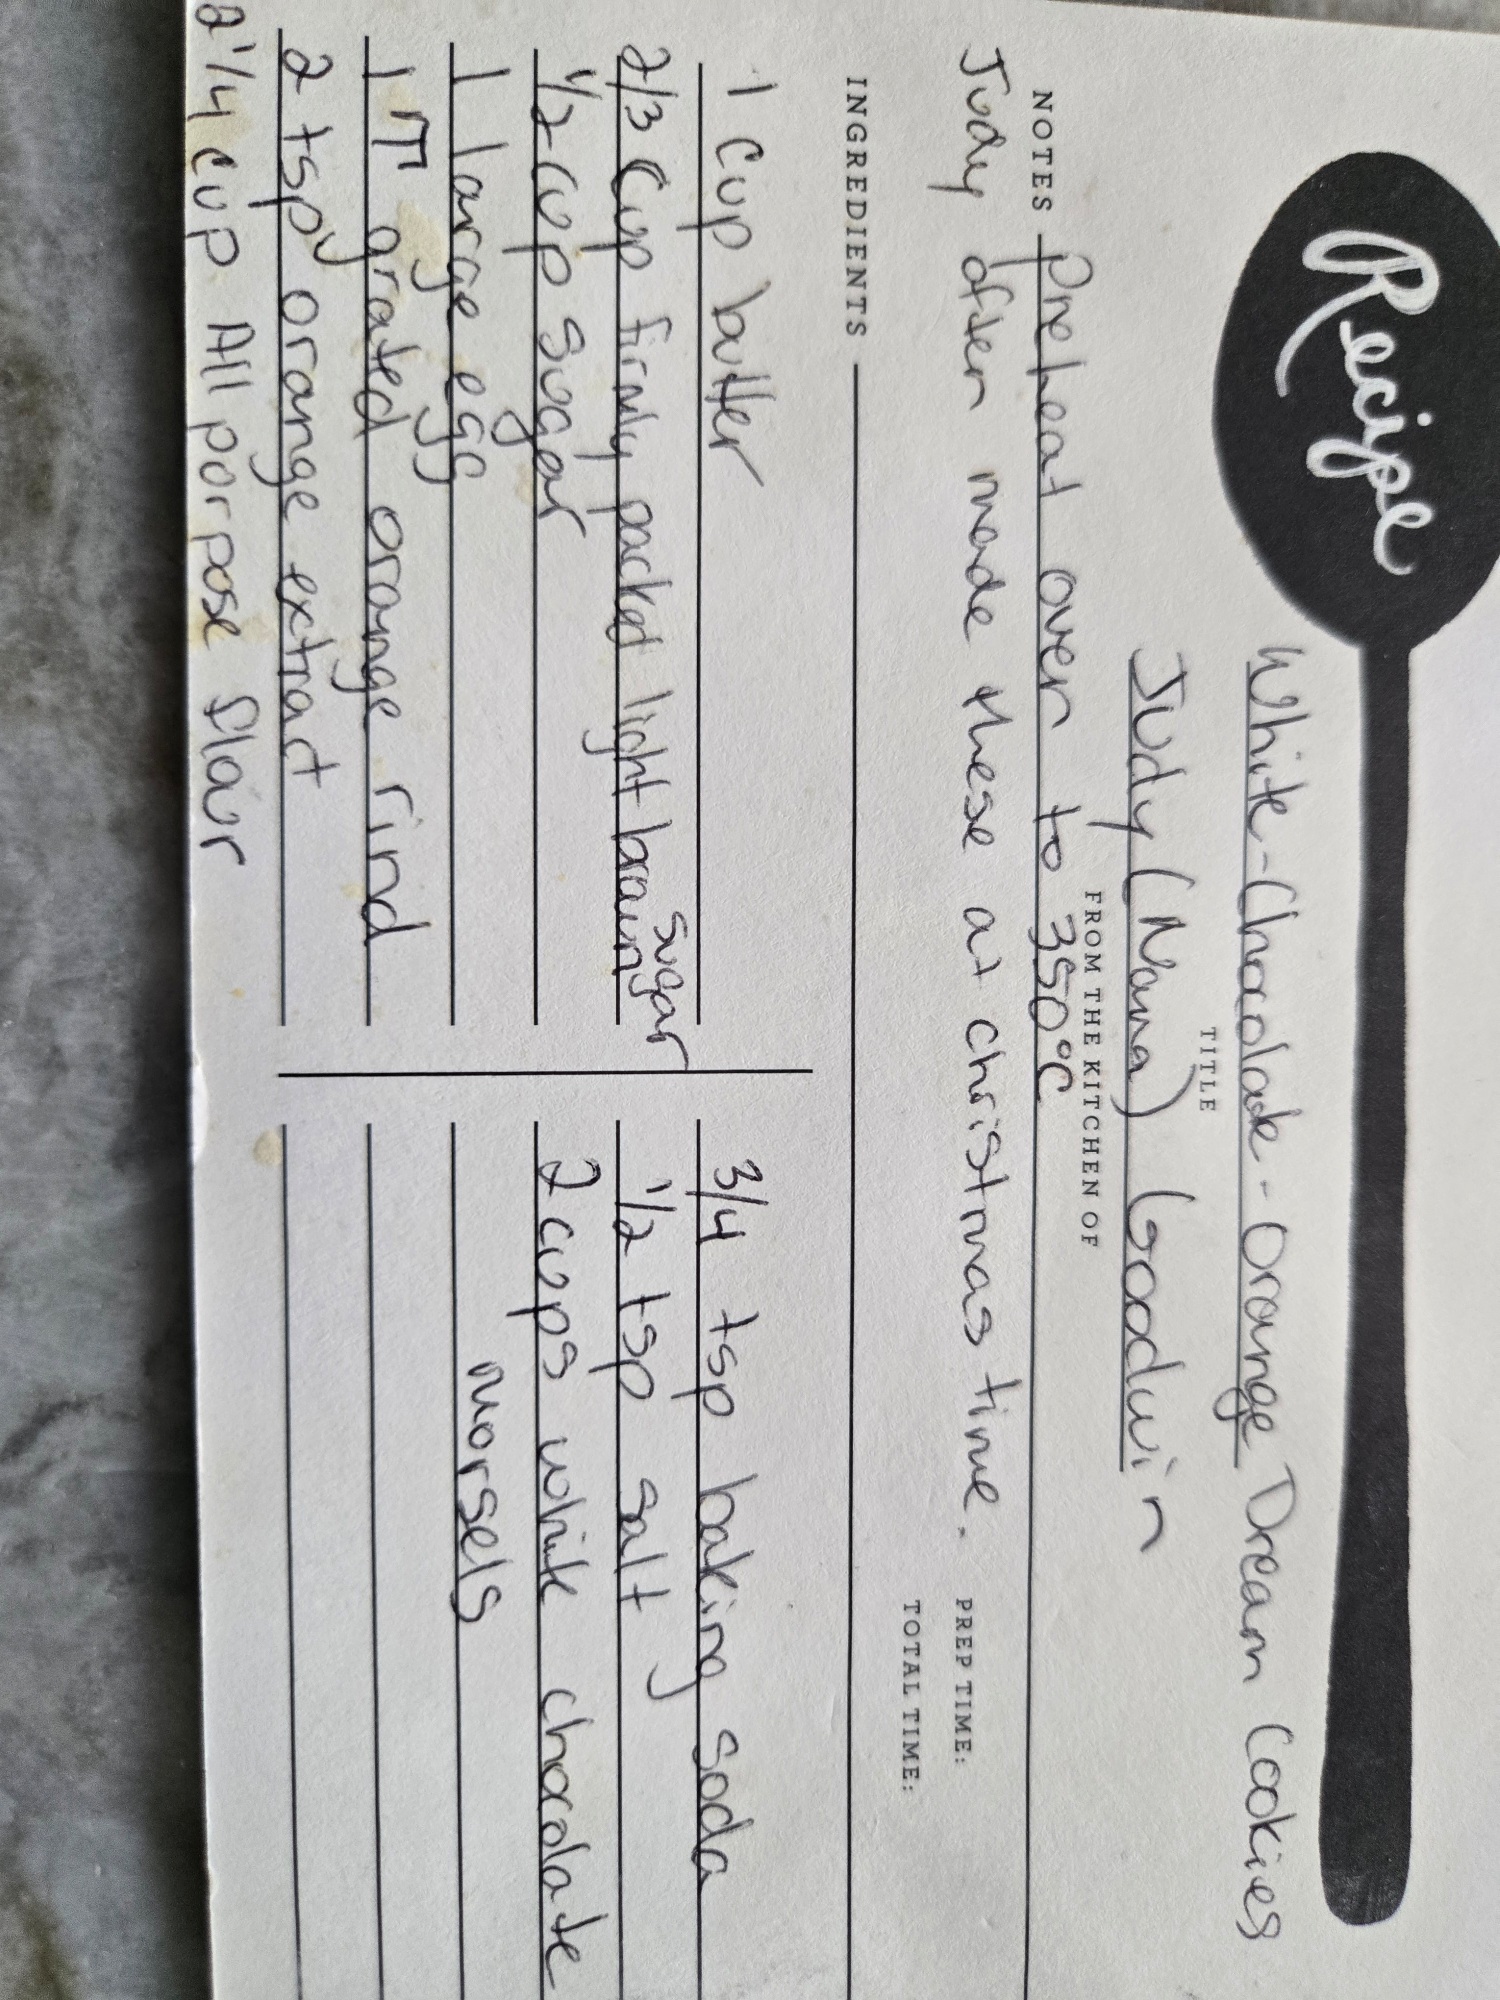 Recipe
White-Chocolate-Orange Dream Cookies
TITLE
Judy (Nana) Goodwin
FROM THE KITCHEN OF
NOTES Preheat oven to 350°C
Judy often made these at christmas time.
PREP TIME:
TOTAL TIME:
INGREDIENTS
1 cup butter
2/3 Cup firmly packed light brown sugar
1/2 cup sugar
1 large egg
1 T grated orange rind
2 tsp orange extract
2 1/4 cup All porpose flour
3/4 tsp baking soda
1/2 tsp salt
2 cups white chocolate
morsels